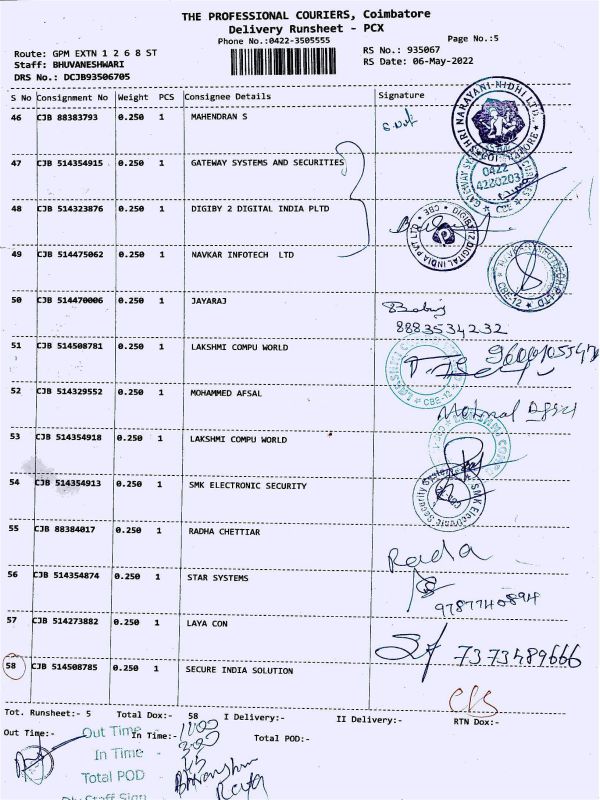 THE PROFESSIONAL COURIERS, Coimbatore
Delivery Runsheet - PCX
Phone No.:0422-3505555
Page No.:5
Route: GPM EXTN 1 2 6 8 ST
Staff: BHUVANESHWARI
DRS No.: DCJB93506705
RS No.: 935067
RS Date: 06-May-2022
S No Consignment No Weight PCS Consignee Details Signature
46 CJB 88383793 0.250 1 MAHENDRAN S
SHRI NARAYANI-NIDHI LTD.
47 CJB 514354915 0.250 1 GATEWAY SYSTEMS AND SECURITIES
0422
4220203
48 CJB 514323876 0.250 1 DIGIBY 2 DIGITAL INDIA PLTD
DIGIBY 2 DIGITAL INDIA PVT LTD CBE
49 CJB 514475062 0.250 1 NAVKAR INFOTECH LTD
CBE-12
50 CJB 514470006 0.250 1 JAYARAJ
8883534232
51 CJB 514508781 0.250 1 LAKSHMI COMPU WORLD
CBE-12
52 CJB 514329552 0.250 1 MOHAMMED AFSAL
53 CJB 514354918 0.250 1 LAKSHMI COMPU WORLD
54 CJB 514354913 0.250 1 SMK ELECTRONIC SECURITY
SMK Electronic Security System
55 CJB 88384017 0.250 1 RADHA CHETTIAR
Rada
56 CJB 514354874 0.250 1 STAR SYSTEMS
9787740894
57 CJB 514273882 0.250 1 LAYA CON
7373489666
58 CJB 514508785 0.250 1 SECURE INDIA SOLUTION
Tot. Runsheet:- 5 Total Dox:- 58 I Delivery:- II Delivery:- RTN Dox:-
Out Time:- In Time:- Total POD:-
Out Time -
In Time -
Total POD -